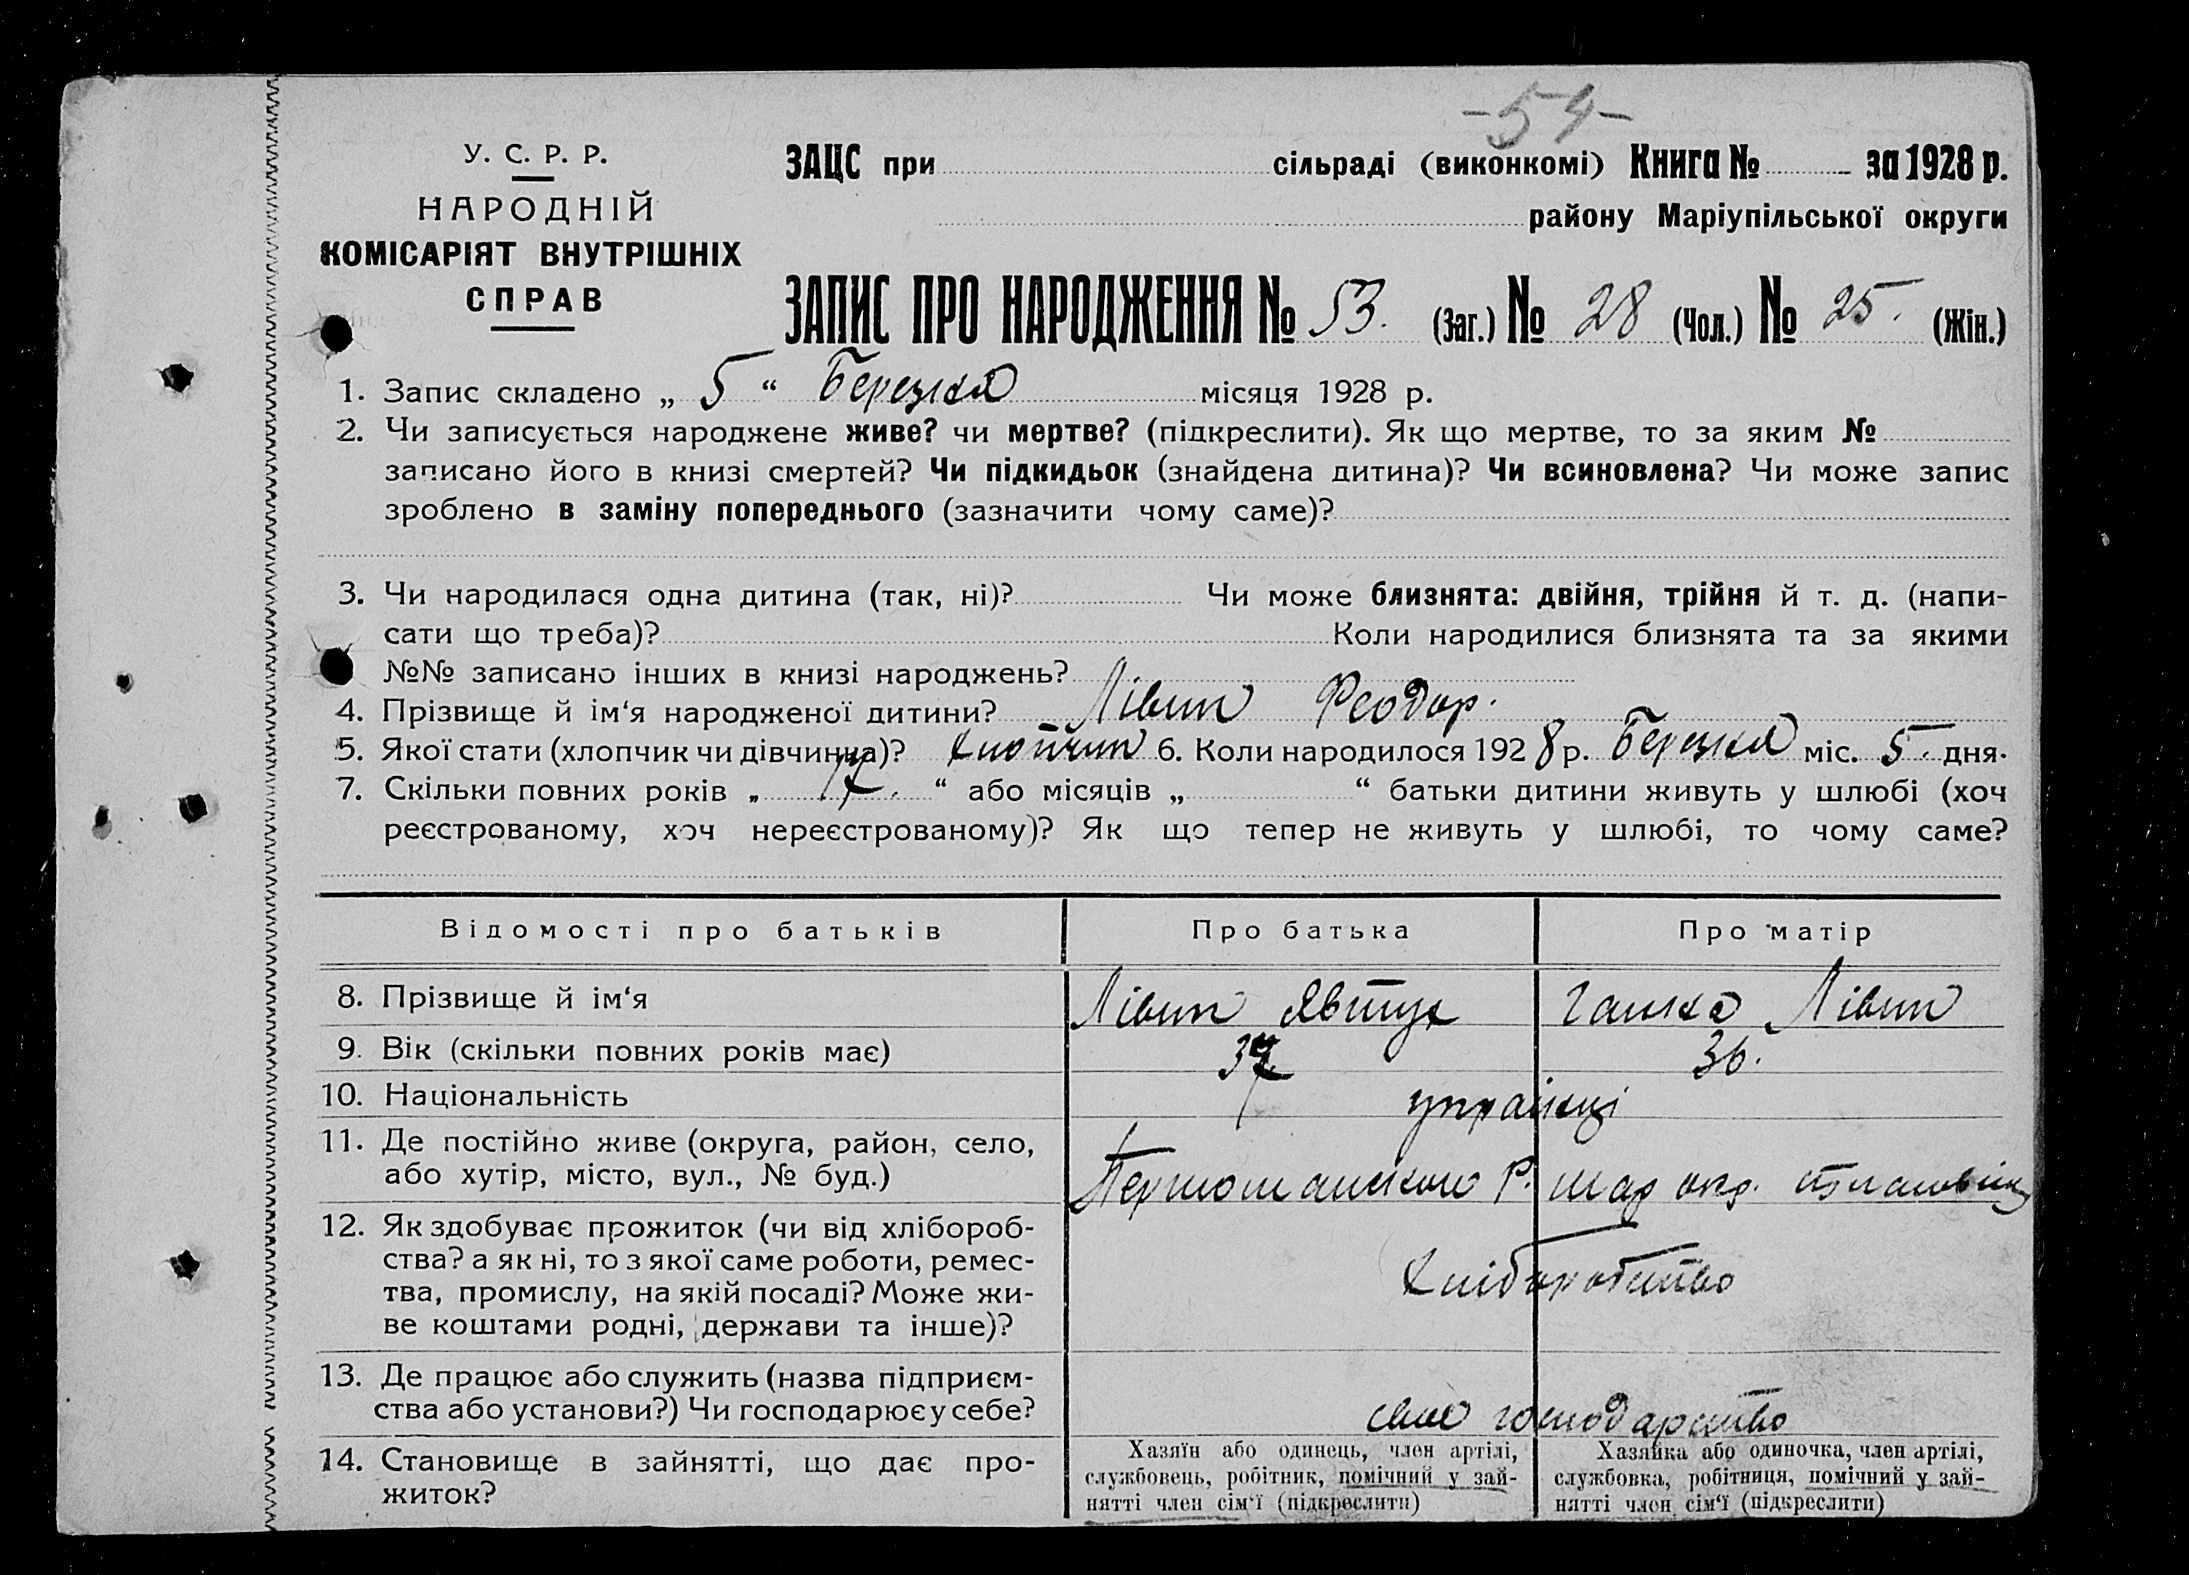 -54-
У. С. Р. Р.
НАРОДНІЙ
КОМІСАРІЯТ ВНУТРІШНІХ
СПРАВ
ЗАЦС при сільраді (виконкомі) Книга № за 1928 р.
району Маріупільської округи
ЗАПИС ПРО НАРОДЖЕННЯ № 53. (Заг.) № 28 (Чол.) № 25. (Жін.)
1. Запис складено „ 5 “ Березня місяця 1928 р.
2. Чи записується народжене живе? чи мертве? (підкреслити). Як що мертве, то за яким №
записано його в книзі смертей? Чи підкидьок (знайдена дитина)? Чи всиновлена? Чи може запис
зроблено в заміну попереднього (зазначити чому саме)?
3. Чи народилася одна дитина (так, ні)? Чи може близнята: двійня, трійня й т. д. (напи-
сати що треба)? Коли народилися близнята та за якими
№№ записано інших в книзі народжень?
4. Прізвище й ім‘я народженої дитини? Лівин Феодор.
5. Якої стати (хлопчик чи дівчинка)? Хлопчик 6. Коли народилося 1928 р. Березня міс. 5. дня.
7. Скільки повних років „ 17. “ або місяців „ “ батьки дитини живуть у шлюбі (хоч
реєстрованому, хоч нереєстрованому)? Як що тепер не живуть у шлюбі, то чому саме?
Відомості про батьків Про батька Про матір
8. Прізвище й ім‘я Лівин Явтух Ганна Лівин
9. Вік (скільки повних років має) 37 36.
10. Національність українці
11. Де постійно живе (округа, район, село,
або хутір, місто, вул., № буд.) Р. Мар окр.
12. Як здобуває прожиток (чи від хлібороб-
ства? а як ні, то з якої саме роботи, ремес-
тва, промислу, на якій посаді? Може жи-
ве коштами родні, держави та інше)?
Хліборобство
13. Де працює або служить (назва підприєм-
ства або установи?) Чи господарює у себе? своє господарство
14. Становище в зайнятті, що дає про-
житок?
Хазяїн або одинець, член артілі,
службовець, робітник, помічний у зай-
нятті член сім‘ї (підкреслити)
Хазяйка або одиночка, член артілі,
службовка, робітниця, помічний у зай-
нятті член сім‘ї (підкреслити)